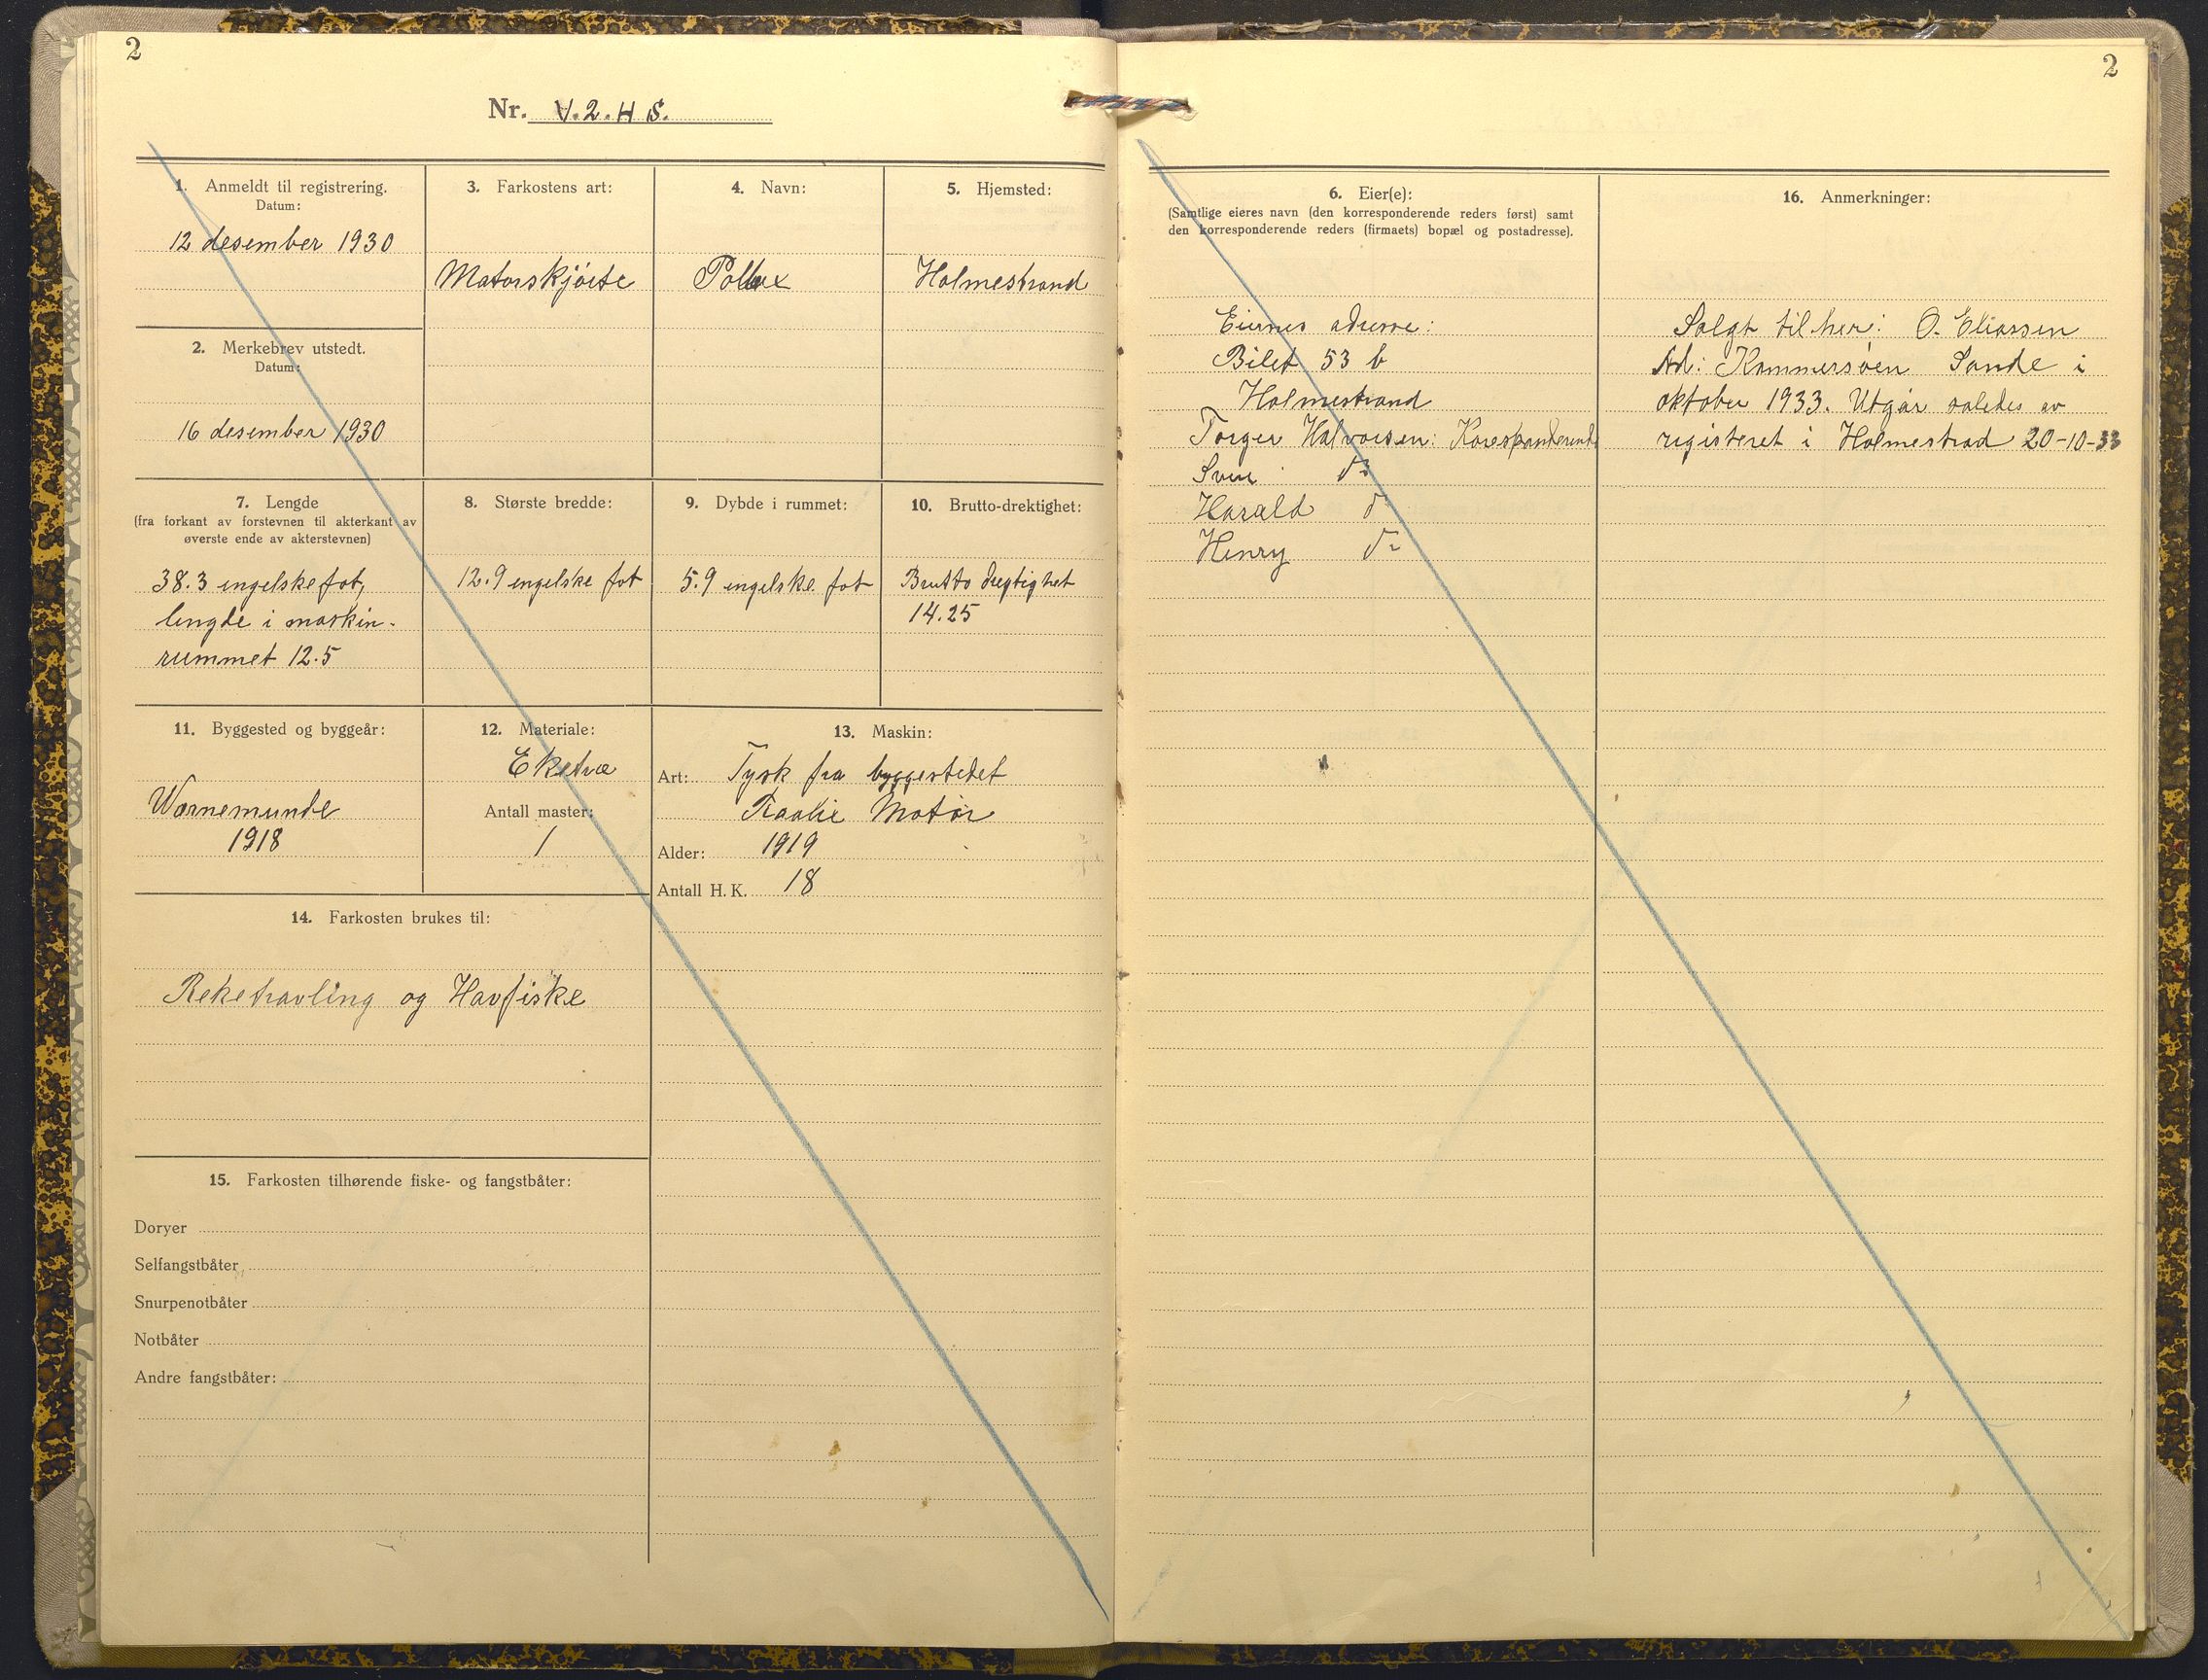 2
Nr. V.2.H S.
1. Anmeldt til registrering.
Datum:
12 desember 1930
2. Merkebrev utstedt.
Datum:
16 desember 1930
3. Farkostens art:
Motorskjöite
4. Navn:
Pollux
5. Hjemsted:
Holmestrand
7. Lengde
(fra forkant av forstevnen til akterkant av
øverste ende av akterstevnen)
38.3 engelske fot,
lengde i maskin-
rummet 12.5
8. Største bredde:
12.9 engelske fot
9. Dybde i rummet:
5.9 engelske fot
10. Brutto-drektighet:
Brutto dregtighet
14.25
11. Byggested og byggeår:
Warnemunde
1918
12. Materiale:
Eketræ
Antall master:
1
13. Maskin:
Art: Tysk fra byggestedet
Motor
Alder: 1919
Antall H. K. 18
14. Farkosten brukes til:
Reketravling og Havfiske
15. Farkosten tilhørende fiske- og fangstbåter:
Doryer
Selfangstbåter
Snurpenotbåter
Notbåter
Andre fangstbåter:
2
6. Eier(e):
(Samtlige eieres navn (den korresponderende reders først) samt
den korresponderende reders (firmaets) bopæl og postadresse).
Eiernes adresse:
Bilet 53 b
Holmestrand
Torger Halvorsen: Koresponderende
Sven do
Harald do
Henry do
16. Anmerkninger:
Solgt til her: O. Eliassen
Ad: Kommersöen Sande i
oktober 1933. Utgår saledes av
registeret i Holmestrad 20-10-33